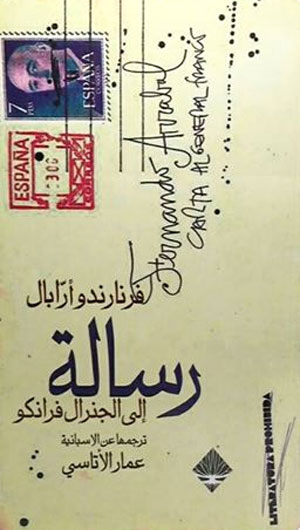 7
PTAS
ESPAÑA
CORREOS
ESPAÑA
Fernando Arrabal
CARTA AL GENERAL FRANCO
فرناردندو أرّابال
رسالة
إلى الجنرال فرانكو
ترجمها عن الإسبانية
عمار الأتاسي
LITERATURA PROHIBIDA